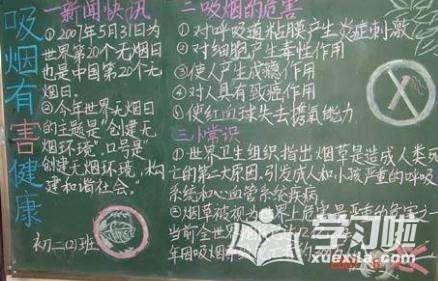 吸烟有害健康
一新闻快讯
①2007年5月31日为
世界第20个无烟日
也是中国第20个无
烟日。
②今年世界无烟日
的主题是“创建无
烟环境”。口号是
“创建无烟环境，构
建和谐社会。”
初一(2)班
二吸烟的危害
①对呼吸道粘膜产生炎症刺激
②对细胞产生毒性作用
③使人产生成瘾作用
④对人具有致癌作用
⑤使红血球失去携氧能力
三小常识
①世界卫生组织指出烟草是造成人类死
亡的第二大原因，引发成人和小孩严重的呼吸
系统和心血管系统疾病
②烟草被视为世界上危害最严重的危害之一
当前全世界
年因吸烟
学习啦
xuexila.com